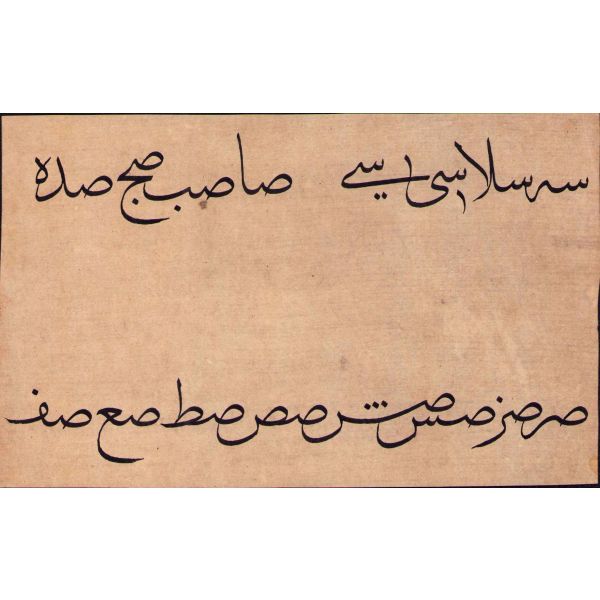 سه سلا سی سے صا صب صح صده
صر صز صس صش صص صط صع صف